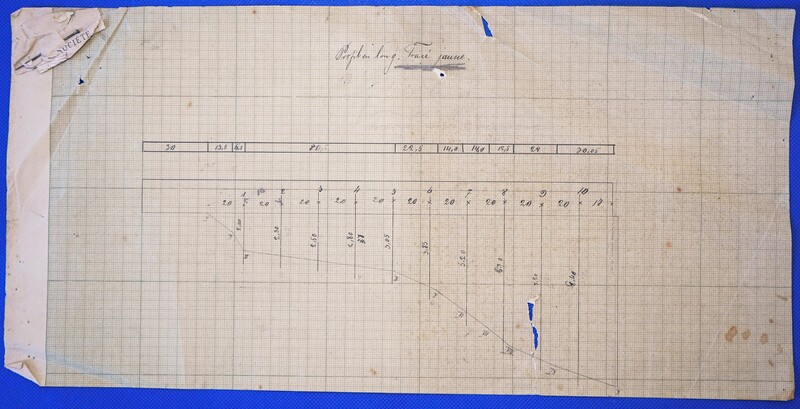 SOCIÉTÉ
Profil en long. Tracé jaune.
30 13,5 80,5 22,5 14,0 14,0 12,5 24 20,05
1 2 3 4 5 6 7 8 9 10
20 20 20 20 20 20 20 20 20 20 18
2,00 2,30 2,60 2,80 3,05 3,85 5,20 8,40